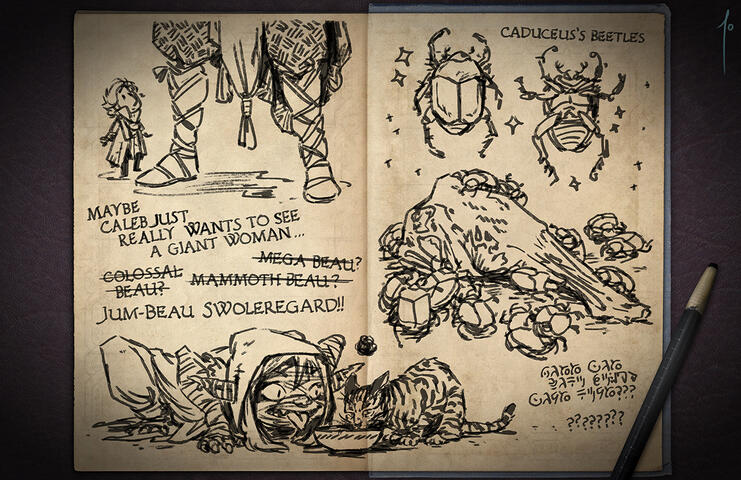 MAYBE
CALEB JUST
REALLY WANTS TO SEE
A GIANT WOMAN...
MEGA BEAU?
COLOSSAL
BEAU?
MAMMOTH BEAU?
JUM-BEAU SWOLEREGARD!!
CADUCEUS'S BEETLES
???????